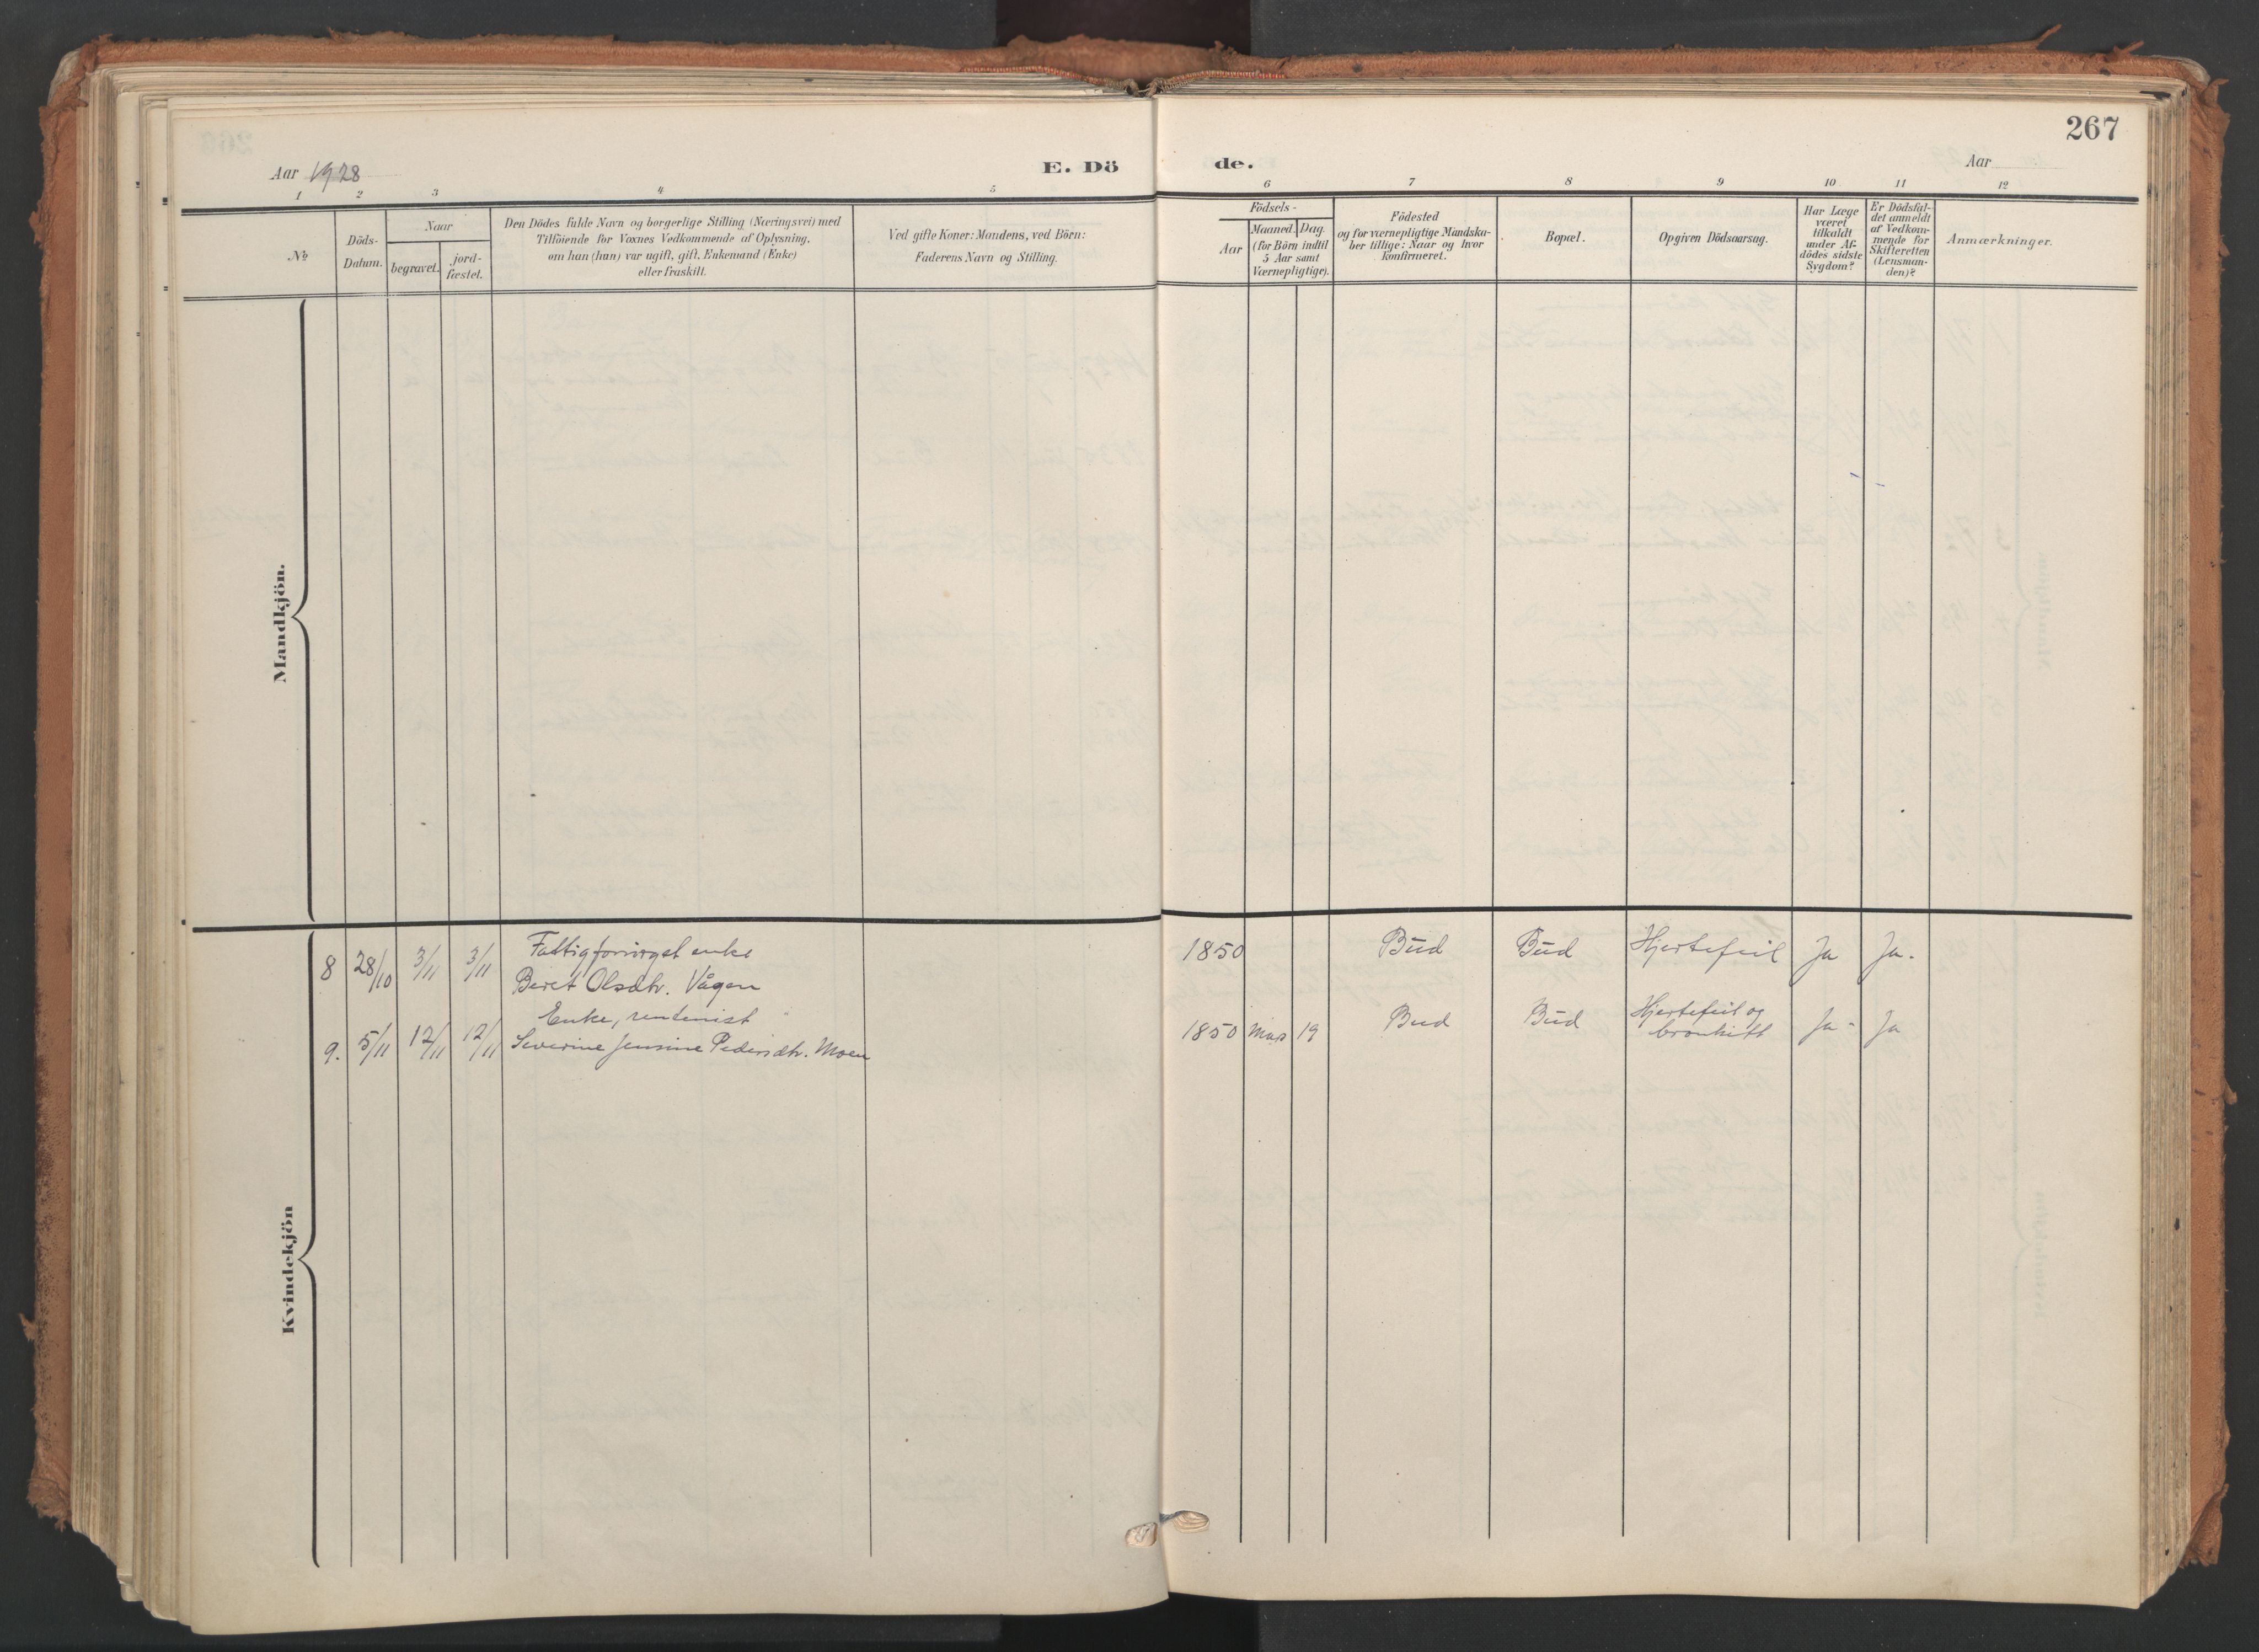 267
Aar 1928
E. Dö
de.
Aar
1 2 3 4 5 6 7 8 9 10 11 12
№
Döds-
Datum.
Naar
begravet.
jord-
fæstet.
Den Dödes fulde Navn og borgerlige Stilling (Næringsvei) med
Tilföiende for Voxnes Vedkommende af Oplysning,
om han (hun) var ugift, gift, Enkemand (Enke)
eller fraskilt.
Ved gifte Koner: Mandens, ved Börn:
Faderens Navn og Stilling.
Födsels-
Aar
Maaned. Dag.
(for Börn indtil
5 Aar samt
Værnepligtige).
Födested
og for værnepligtige Mandska-
ber tillige: Naar og hvor
konfirmeret.
Bopæl.
Opgiven Dödsaarsag.
Har Læge
været
tilkaldt
under Af-
dödes sidste
Sygdom?
Er Dödsfal-
det anmeldt
af Vedkom-
mende for
Skifteretten
(Lensman-
den)?
Anmærkninger.
Mandkjön.
Kvindekjön
8 28/10 3/11 3/11 Fattigforsörget enke
Beret Olsdtr. Vågen
1850 Bud Bud Hjertefeil Ja Ja.
Enke, rentenist
9. 5/11 12/11 12/11 Severine Jensine Pedersdtr. Moen
1850 Mars 19 Bud Bud Hjertefeil og
bronkitt Ja - Ja